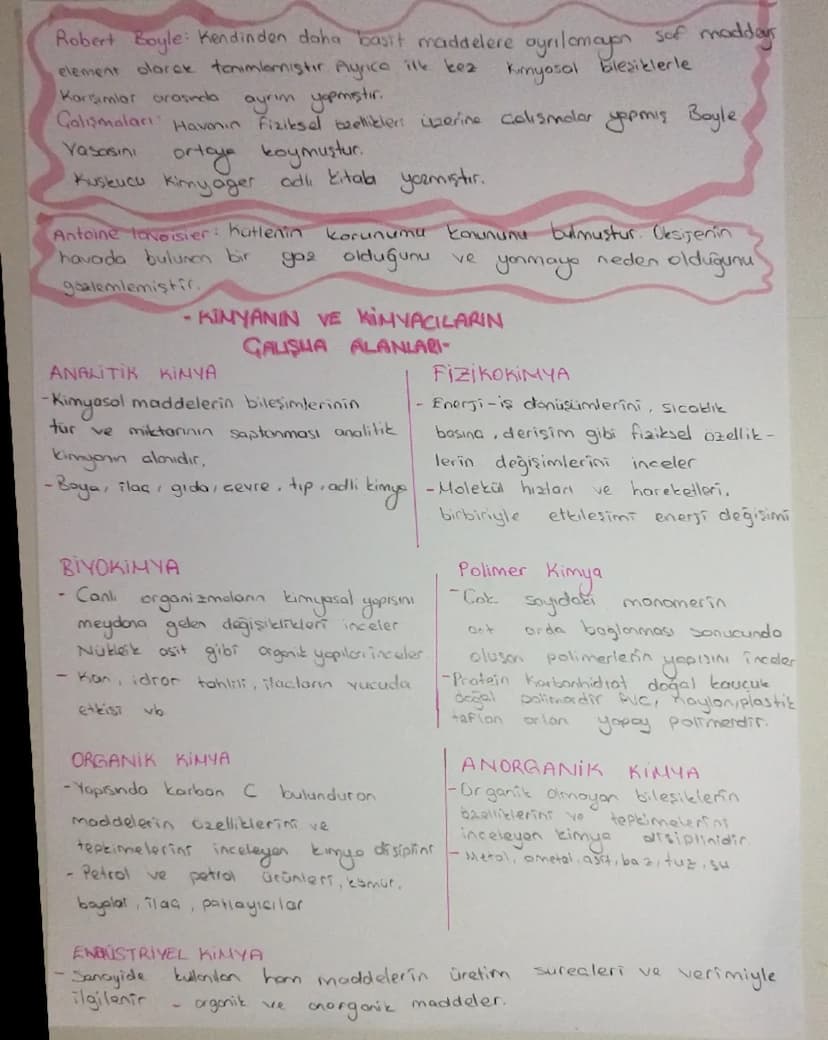 Robert Boyle: Kendinden daha basit maddelere ayrılamayan saf maddeyi
element olarak tanımlamıştır. Ayrıca ilk kez kimyasal bileşiklerle
Karışımlar arasında ayrım yapmıştır.
Çalışmaları: Havanın Fiziksel özellikleri üzerine çalışmalar yapmış Boyle
Yasasını ortaya koymuştur.
Kuşkucu Kimyager adlı kitabı yazmıştır.
Antoine lavoisier: Kütlenin korunumu kanununu bulmuştur. Oksijenin
havada bulunan bir gaz olduğunu ve yanmaya neden olduğunu
gözlemlemiştir.
- KİMYANIN VE KİMYACILARIN
ÇALIŞMA ALANLARI-
ANALİTİK KİMYA
-Kimyasal maddelerin bileşimlerinin
tür ve miktarının saptanması analitik
kimyanın alanıdır,
-Boya, ilaç, gıda, çevre, tıp, adli kimya
FİZİKOKİMYA
- Enerji-iş dönüşümlerini, sıcaklık
basınç, derişim gibi fiziksel özellik-
lerin değişimlerini inceler
-Molekül hızları ve hareketleri,
birbiriyle etkileşimi enerji değişimi
BİYOKİMYA
- Canlı organizmaların kimyasal yapısını
meydana gelen değişiklikleri inceler
Nükleik asit gibi organik yapıları inceler
- Kan, idrar tahlili, ilaçların vücuda
etkisi vb
Polimer Kimya
- Çok sayıdaki monomerin
art arda bağlanması sonucunda
oluşan polimerlerin yapısını inceler
-Protein karbonhidrat doğal kauçuk
doğal polimerdir PVC, naylon, plastik
teflon orlon yapay polimerdir.
ORGANİK KİMYA
-Yapısında karbon C bulunduran
maddelerin özelliklerini ve
tepkimelerini inceleyen kimya disiplini
- Petrol ve petrol ürünleri, kömür,
boyalar, ilaç, patlayıcılar
ANORGANİK KİMYA
-Organik olmayan bileşiklerin
özelliklerini ve tepkimelerini
inceleyen kimya disiplinidir
- Metal, ametal, asit, baz, tuz, su
ENDÜSTRİYEL KİMYA
- Sanayide kullanılan ham maddelerin üretim süreçleri ve verimiyle
ilgilenir - organik ve anorganik maddeler.